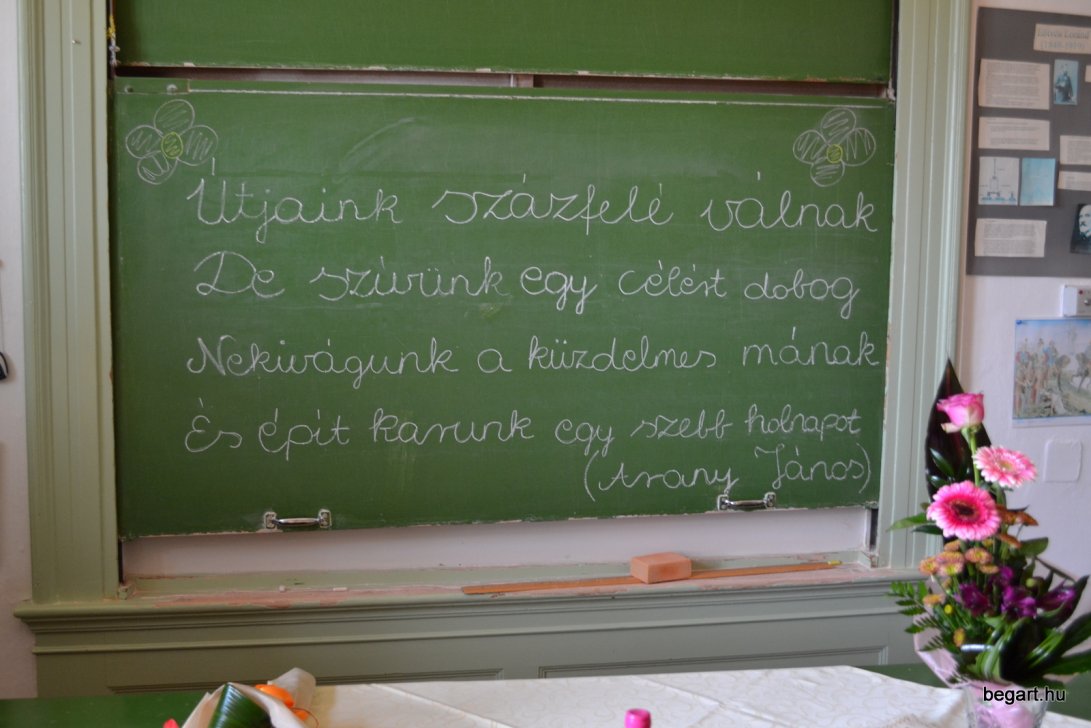 Útjaink százfelé válnak
De szívünk egy célért dobog
Nekivágunk a küzdelmes mának
És épít karunk egy szebb holnapot
(Arany János)
Eötvös Loránd
(1848-1919)
begart.hu